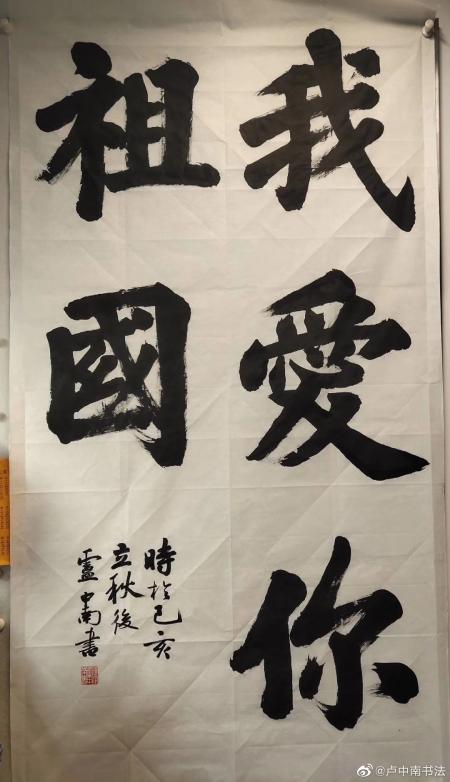 我愛你
祖國
時於己亥
立秋後
盧中南書
@卢中南书法